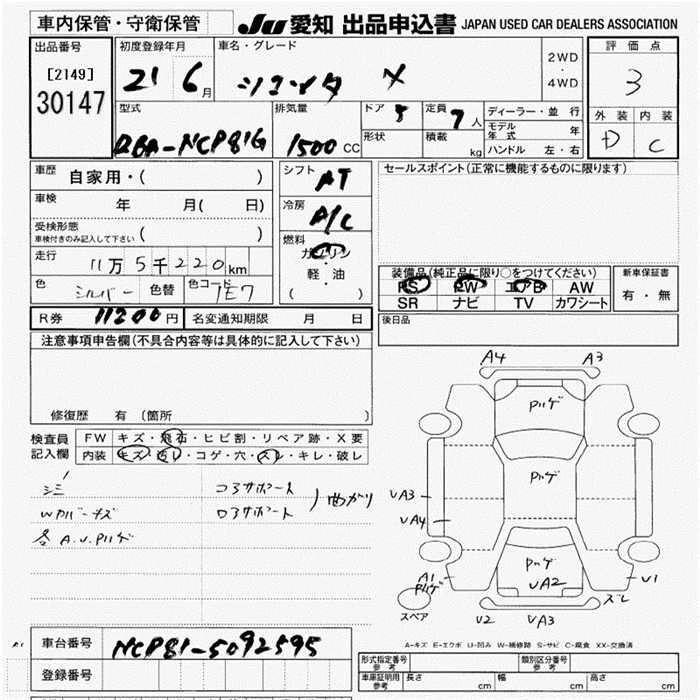 車内保管・守衛保管
JU 愛知 出品申込書 JAPAN USED CAR DEALERS ASSOCIATION
出品番号
[2149]
30147
初度登録年月
21 6月
車名・グレード
シエンタ X
2WD
・
4WD
評価点
3
外装 内装
D C
型式
DBA-NCP81G
排気量
1500 CC
ドア 5
形状
定員 7人
積載 kg
ディーラー・並 行
モデル年式 年
ハンドル 左・右
車歴
自家用・( )
車検
年 月( 日)
受検形態
車検付きのみ記入して下さい ( )
走行
11万5千220km
色 シルバー 色替 色コード 1E7
シフト AT
冷房 A/C
燃料
ガソリン
・
軽・油
( )
セールスポイント(正常に機能するものに限ります)
装備品(純正品に限り○をつけてください)
PS PW エアB AW
SR ナビ TV カワシート
新車保証書
有・無
後日品
R券 11200円 名変通知期限 月 日
注意事項申告欄(不具合内容等は具体的に記入して下さい)
修復歴 有(箇所 )
検査員
記入欄
FW キズ・飛石・ヒビ割・リペア跡・X要
内装 キズ・汚レ・コゲ・穴・スレ・キレ・破レ
シミ
Wアバーキズ
各A.U.Pハゲ
コアサポート
ロアサポート
曲がり
A4 A3
Pハゲ
Pハゲ
Pハゲ
UA2
UA3
UA4
A1
Pハゲ
U1
スレ
スペア
U2 UA3
A-キズ E-エクボ U-凹み W-補修跡 S-サビ C-腐食 XX-交換済
A1
車台番号 NCP81-5092595
登録番号
形式指定番号
参考
類別区分番号
参考
車庫証明用
参考
長さ cm 幅 cm 高さ cm